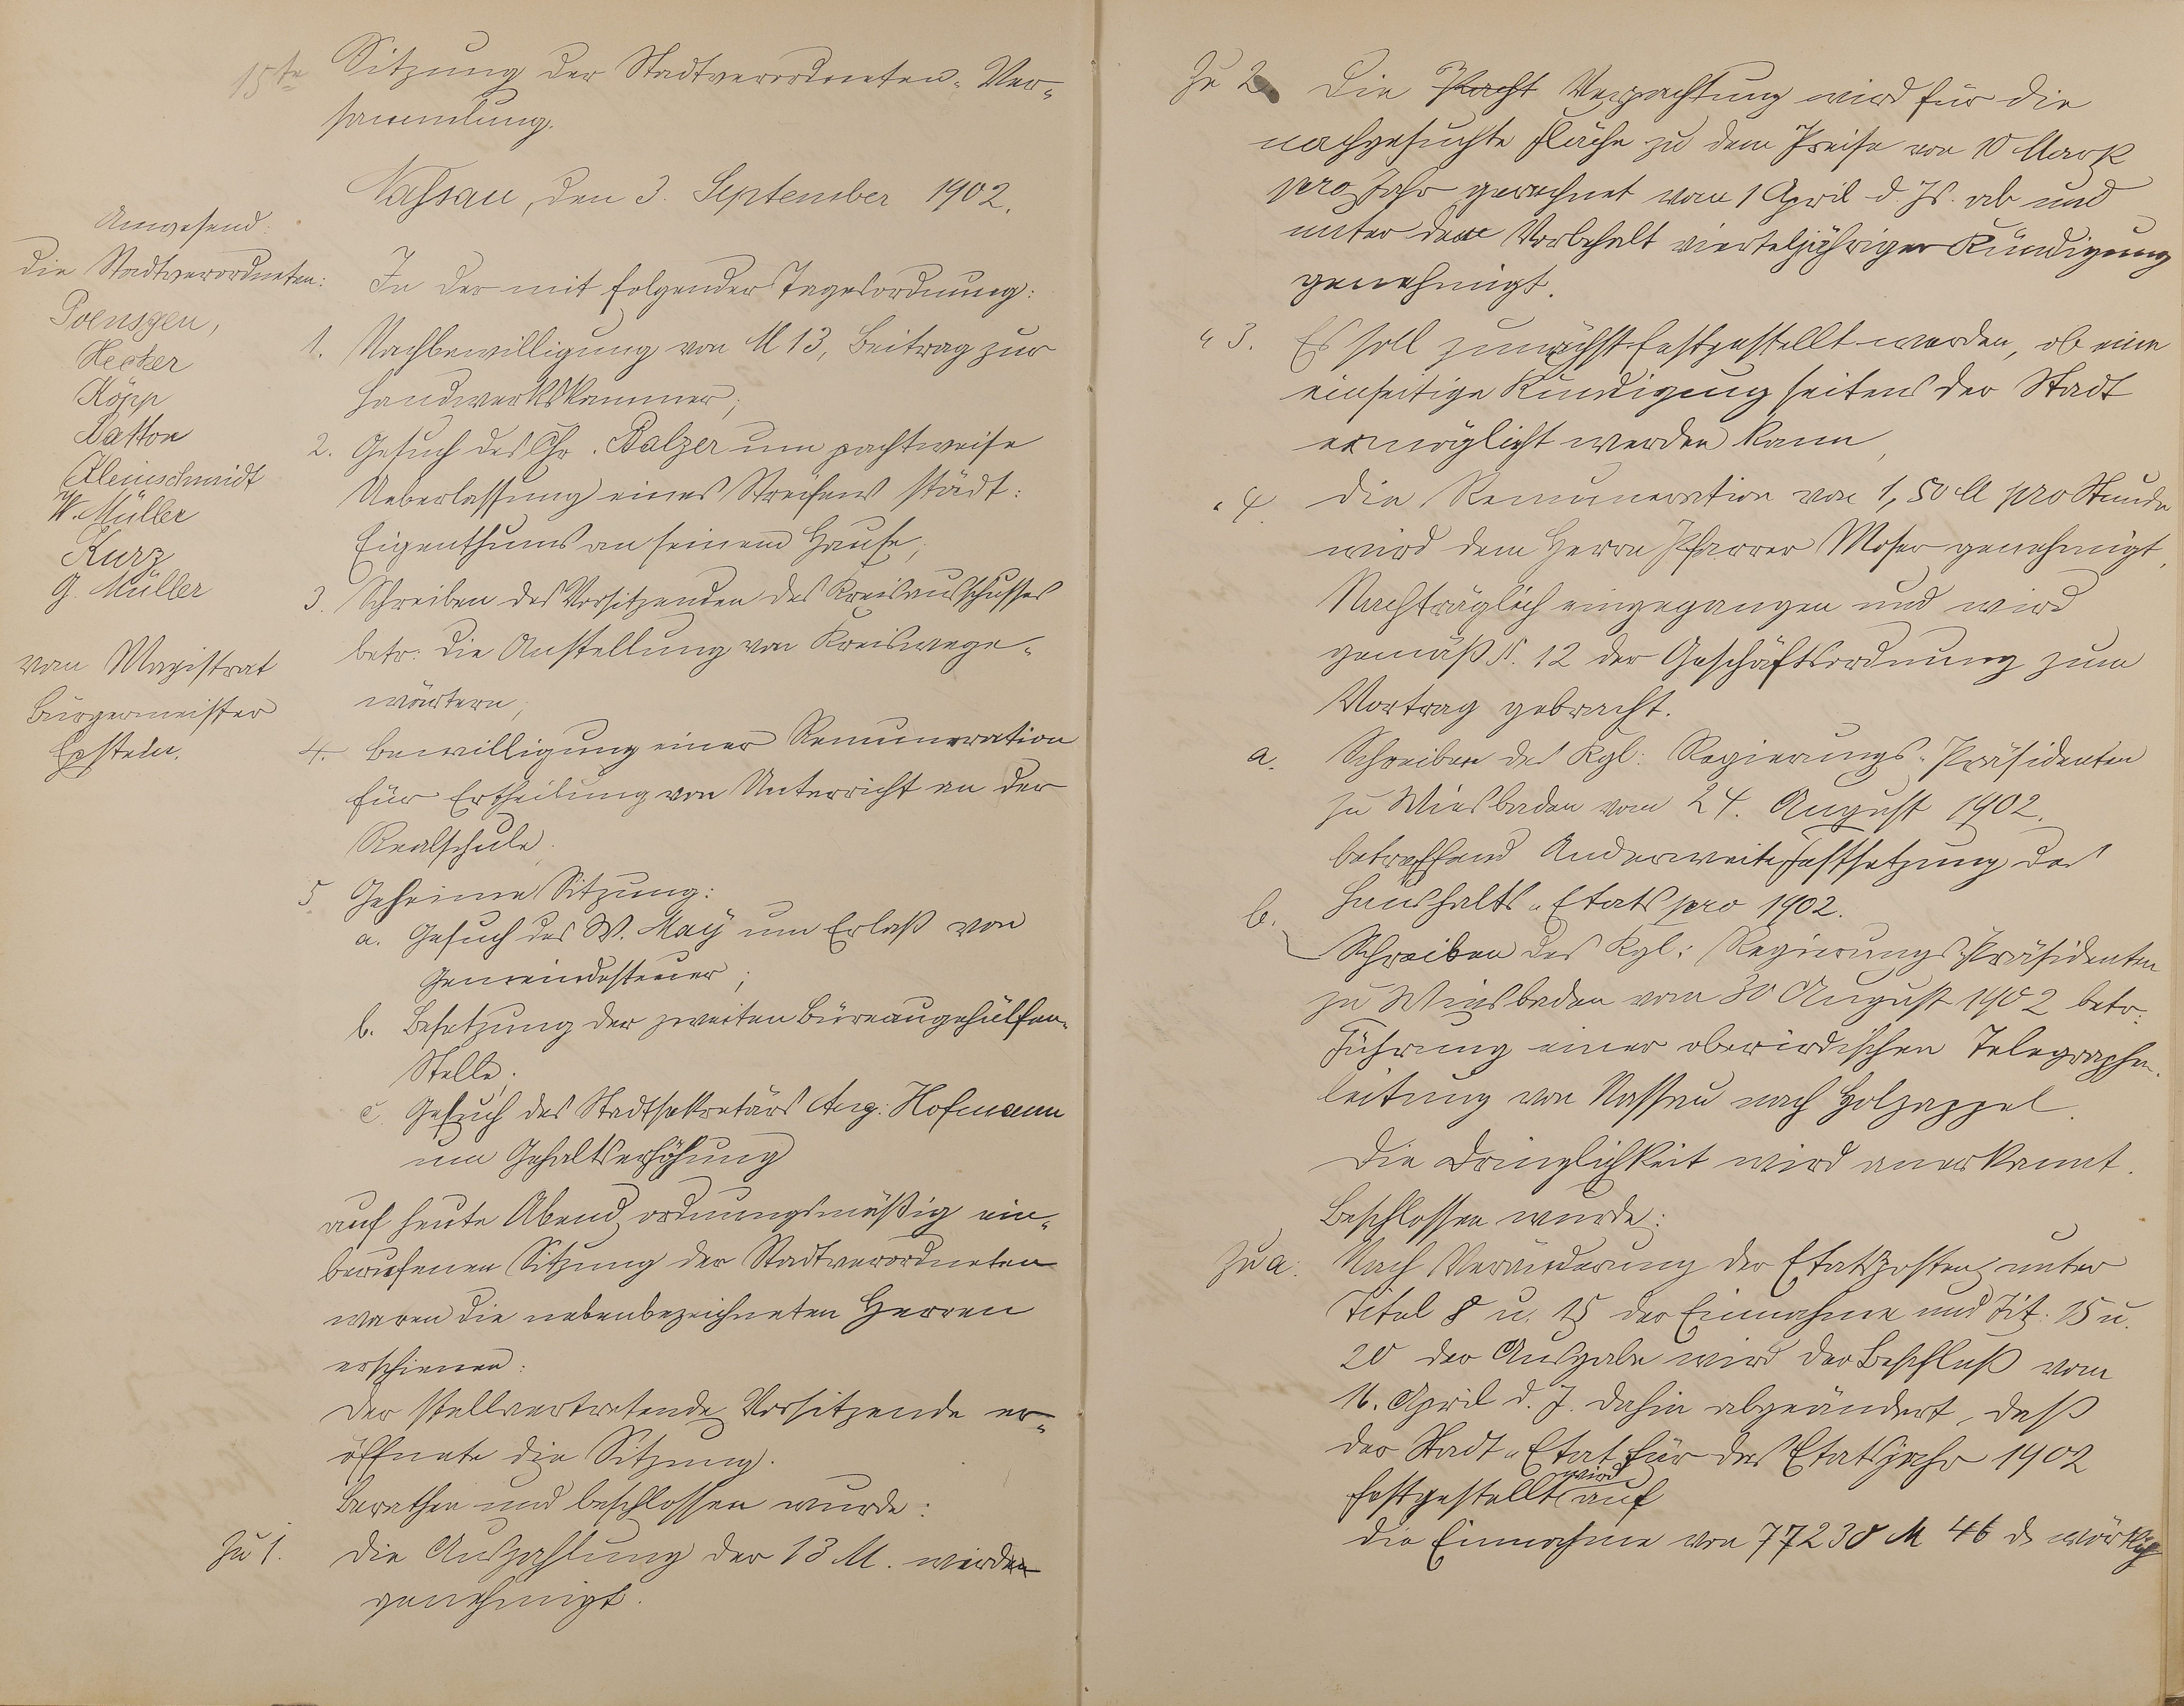 15te Sitzung der Stadtverordneten-Ver-
sammlung.
Nassau, den 3. September 1902.
Anwesend:
die Stadtverordneten:
Poensgen,
Hecker
Köpp
Kleinschmidt
W. Müller
Kurz
G. Müller
vom Magistrat
Bürgermeister
In der mit folgender Tagesordnung:
1. Nachbewilligung von M 13, Beitrag zur
Handwerkskammer;
2. Gesuch des Chr. Balzer um pachtweise
Ueberlassung eines Streifens städt:
Eigenthums an seinem Hause;
3. Schreiben des Vorsitzenden des Kreisausschusses
betr: die Anstellung von Kreiswege-
wärtern;
4. Bewilligung einer Remuneration
für Ertheilung von Unterricht an der
Realschule.
5 Geheime Sitzung:
a. Gesuch des W. Maÿ um Erlaß von
Gemeindesteuer;
b. Besetzung der zweiten Büreaugehülfen-
Stelle;
c. Gesuch des Stadtsekretärs Aug: Hofmann
um Gehaltserhöhung
auf heute Abend ordnungsmäßig ein-
berufenen Sitzung der Stadtverordneten
waren die nebenbezeichneten Herren
erschienen:
Der stellvertretende Vorsitzende er-
öffnete die Sitzung.
Berathen und beschlossen wurde:
Zu 1. Die Auszahlung der 13 M. wird
genehmigt.
Zu 2 Die Pacht Verpachtung wird für die
nachgesuchte Fläche zu dem Preise von 10 Mark
pro Jahr gerechnet vom 1 April d. Js. ab und
unter dem Vorbehalt vierteljähriger Kündigung
genehmigt.
" 3. Es soll zunächst festgestellt werden, ob eine
einseitige Kündigung seitens der Stadt
ermöglicht werden kann,
" 4. Die Remuneration von 1,50 M pro Stunde
wird dem Herrn Pfarrer Moser genehmigt,
Nachträglich eingegangen und wird
gemäß §. 12 der Geschäftsordnung zum
Vortrag gebracht.
a. Schreiben des Kgl: Regierungs-Präsidenten
zu Wiesbaden vom 24. August 1902.
betreffend Anderweite Festsetzung des
Haushalts-Etats pro 1902.
b. Schreiben des Kgl: Regierungs-Präsidenten
zu Wiesbaden vom 30 August 1902 betr:
Führung einer oberirdischen Telegraphen-
leitung von Nassau nach Holzappel.
Die Dringlichkeit wird anerkannt.
Beschlossen wurde:
Zu a. Nach Veränderung der Etatsposten unter
Titel 8 u. 15 der Einnahme und Tit: 15 u.
20 der Ausgabe wird der Beschluß vom
16. April d. J. dahin abgeändert, daß
der Stadt-Etat für das Etatsjahr 1902
festgestellt wird auf
die Einnahme von 77230 M 46 d